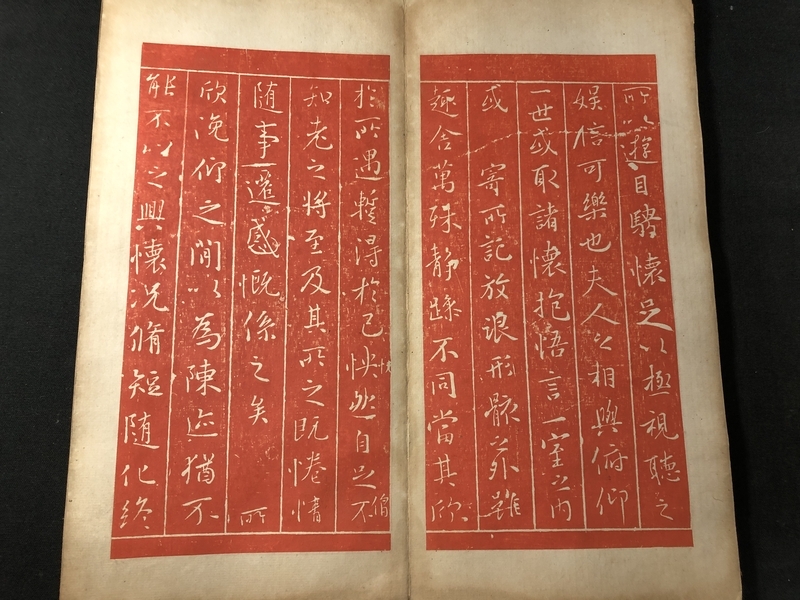 所以遊目騁懷足以極視聽之
娛信可樂也夫人之相與俯仰
一世或取諸懷抱悟言一室之內
或寄所託放浪形骸之外雖
趣舍萬殊靜躁不同當其欣
於所遇暫得於己怏然自足不
知老之將至及其所之既惓情
隨事遷感慨係之矣所
欣俛仰之閒以為陳迹猶不
能不以之興懷況脩短隨化終